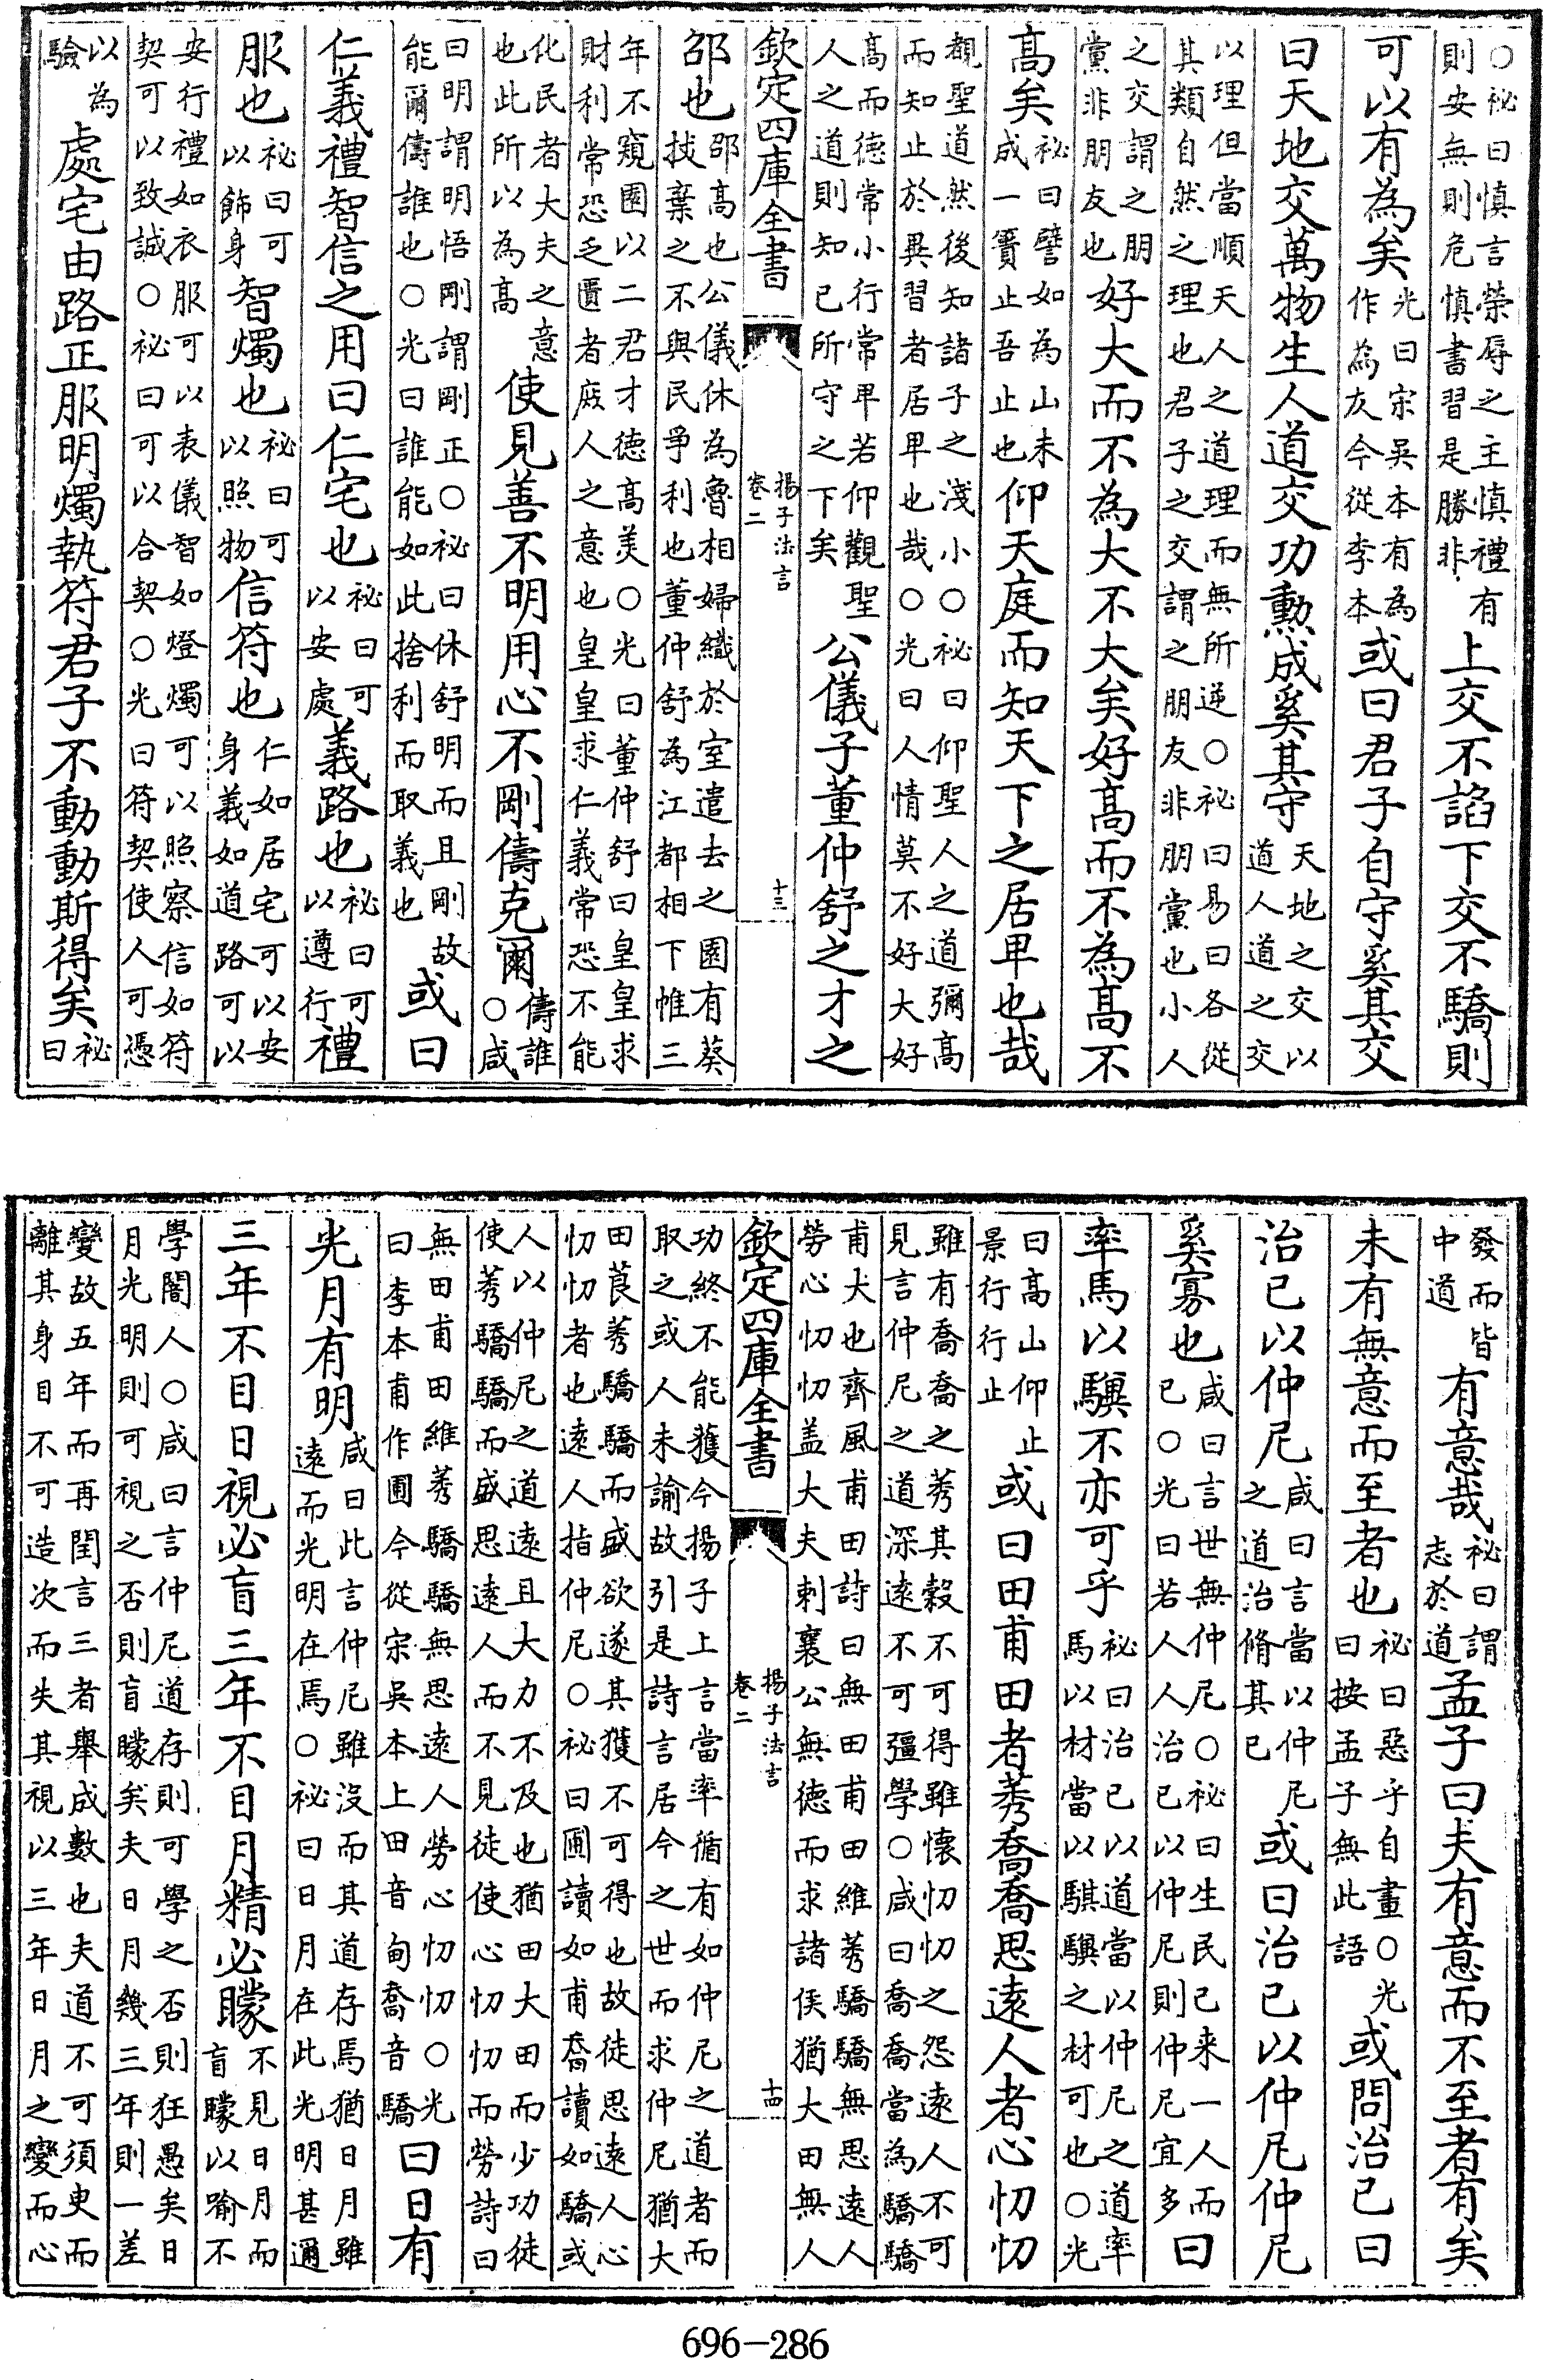 ○祕曰慎言榮辱之主慎禮有則安無則危慎書習是勝非上交不諂下交不驕則
可以有為矣光曰宋吳本有為作為友今從李本或曰君子自守奚其交
曰天地交萬物生人道交功勲成奚其守天地之交以道人道之交
以理但當順天人之道理而無所逆○祕曰易曰各從其類自然之理也君子之交謂之朋友非朋黨也小人
之交謂之朋黨非朋友也好大而不為大不大矣好髙而不為髙不
髙矣祕曰譬如為山未成一簣止吾止也仰天庭而知天下之居卑也哉
覩聖道然後知諸子之淺小○祕曰仰聖人之道彌髙而知止於異習者居卑也哉○光曰人情莫不好大好
髙而徳常小行常卑若仰觀聖人之道則知已所守之下矣公儀子董仲舒之才之
欽定四庫全書 揚子法言 卷二 十三
邵也邵髙也公儀休為魯相婦織於室遣去之園有葵㧞棄之不與民爭利也董仲舒為江都相下帷三
年不窺園以二君才徳髙美○光曰董仲舒曰皇皇求財利常恐乏匱者庶人之意也皇皇求仁義常恐不能
化民者大夫之意也此所以為髙使見善不明用心不剛儔克爾儔誰○咸
曰明謂明悟剛謂剛正○祕曰休舒明而且剛故能爾儔誰也○光曰誰能如此捨利而取義也或曰
仁義禮智信之用曰仁宅也祕曰可以安處義路也祕曰可以遵行禮
服也祕曰可以飾身智燭也祕曰可以照物信符也仁如居宅可以安身義如道路可以
安行禮如衣服可以表儀智如燈燭可以照察信如符契可以致誠○祕曰可以合契○光曰符契使人可憑
以為驗處宅由路正服明燭執符君子不動動斯得矣祕曰
發而皆中道有意哉祕曰謂志於道孟子曰夫有意而不至者有矣
未有無意而至者也祕曰惡乎自畫○光曰按孟子無此語或問治己曰
治已以仲尼咸曰言當以仲尼之道治脩其已或曰治已以仲尼仲尼
奚寡也咸曰言世無仲尼○祕曰生民已来一人而已○光曰若人人治已以仲尼則仲尼宜多曰
率馬以驥不亦可乎祕曰治已以道當以仲尼之道率馬以材當以騏驥之材可也○光
曰髙山仰止景行行止或曰田甫田者莠喬喬思遠人者心忉忉
雖有喬喬之莠其糓不可得雖懐忉忉之怨遠人不可見言仲尼之道深遠不可彊學○咸曰喬喬當為驕驕
甫大也齊風甫田詩曰無田甫田維莠驕驕無思遠人勞心忉忉盖大夫刺襄公無徳而求諸侯猶大田無人
欽定四庫全書 揚子法言 卷二 十四
功終不能獲今揚子上言當率循有如仲尼之道者而取之或人未諭故引是詩言居今之世而求仲尼猶大
田莨莠驕驕而盛欲遂其獲不可得也故徒思遠人心忉忉者也遠人指仲尼○祕曰圃讀如甫喬讀如驕或
人以仲尼之道遠且大力不及也猶田大田而少功徒使莠驕驕而盛思遠人而不見徒使心忉忉而勞詩曰
無田甫田維莠驕驕無思遠人勞心忉忉○光曰李本甫作圃今從宋吳本上田音甸喬音驕曰日有
光月有明咸曰此言仲尼雖没而其道存焉猶日月雖遠而光明在焉○祕曰日月在此光明甚邇
三年不目日視必盲三年不目月精必矇不見日月而盲矇以喻不
學闇人○咸曰言仲尼道存則可學之否則狂愚矣日月光明則可視之否則盲矇矣夫日月幾三年則一差
變故五年而再閏言三者舉成數也夫道不可須臾而離其身目不可造次而失其視以三年日月之變而心
696-286